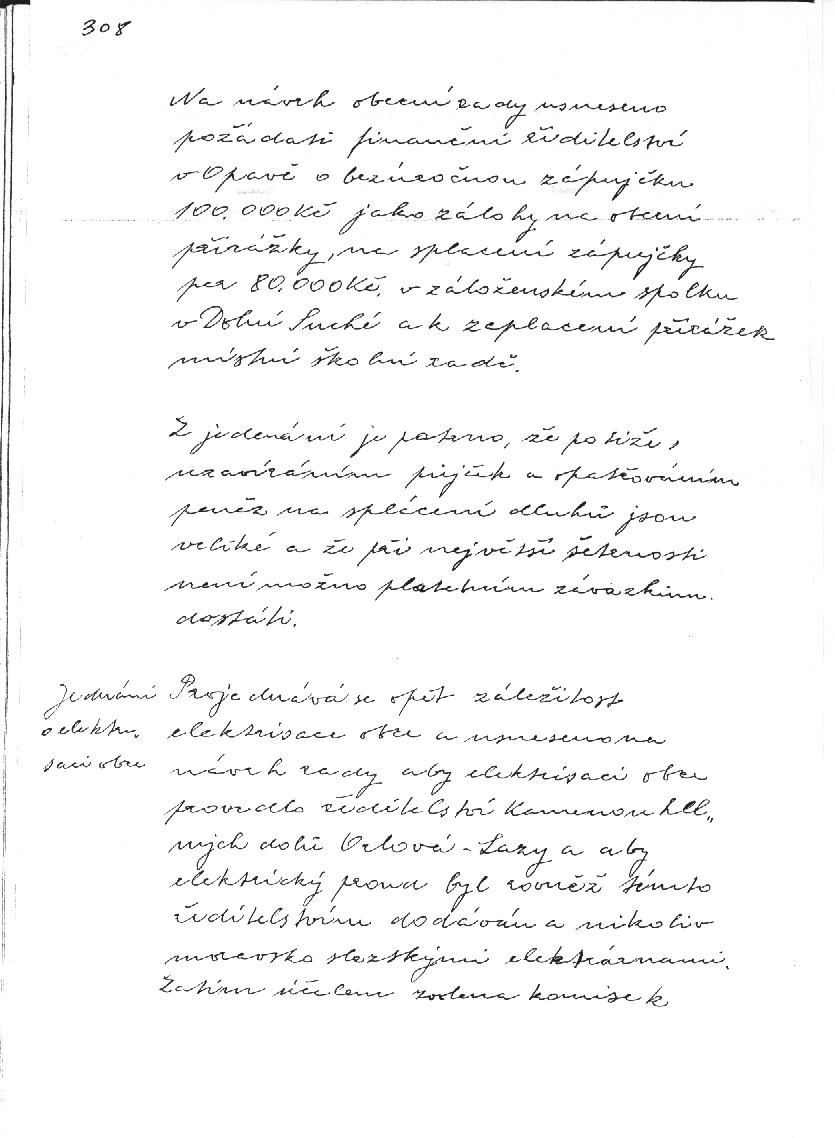 308
Na návrh obecní rady usneseno
požádati finanční ředitelství
v Opavě o bezúročnou zápujčku
100.000Kč jako zálohy na obecní
přirážky, na splacení zápujčky
per 80.000Kč. v záloženském spolku
v Dolní Suché a k zaplacení přirážek
místní školní radě.
Z jednání je patrno, že potíže s
uzavíráním půjček a opatřováním
peněz na splácení dluhů jsou
veliké a že při největší šetrnosti
není možno platebním závazkům
dostáti.
Jednání
o elektri,
saci obce
Projednává se opět záležitost
elektrisace obce a usneseno na
návrh rady aby elektrisaci obce
provedlo ředitelství Kamenouhel„
ných dolů Orlová-Lazy a aby
elektrický proud byl rovněž tímto
ředitelstvím dodáván a nikoliv
moravsko slezskými elektrárnami.
Zatím účelem zvolena komise k